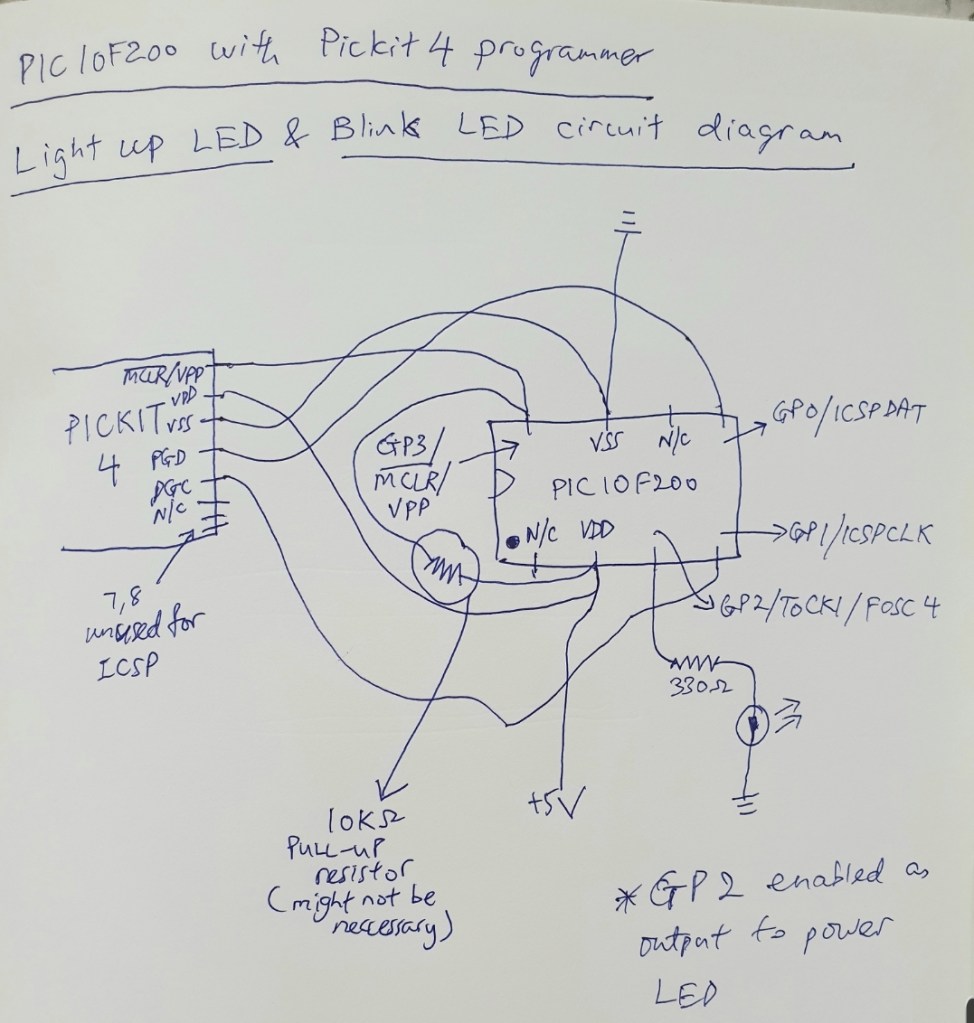 PIC10F200 with Pickit 4 programmer
Light up LED & Blink LED circuit diagram
MCLR/VPP
VDD
PICKIT
VSS
4
PGD
PGC
N/C
7,8
unused for
ICSP
GP3/
MCLR/
VPP
VSS
N/C
PIC10F200
N/C
VDD
GP0/ICSPDAT
GP1/ICSPCLK
GP2/T0CK1/FOSC4
330Ω
+5V
10KΩ
PULL-UP
resistor
(might not be
neccessary)
* GP2 enabled as
output to power
LED